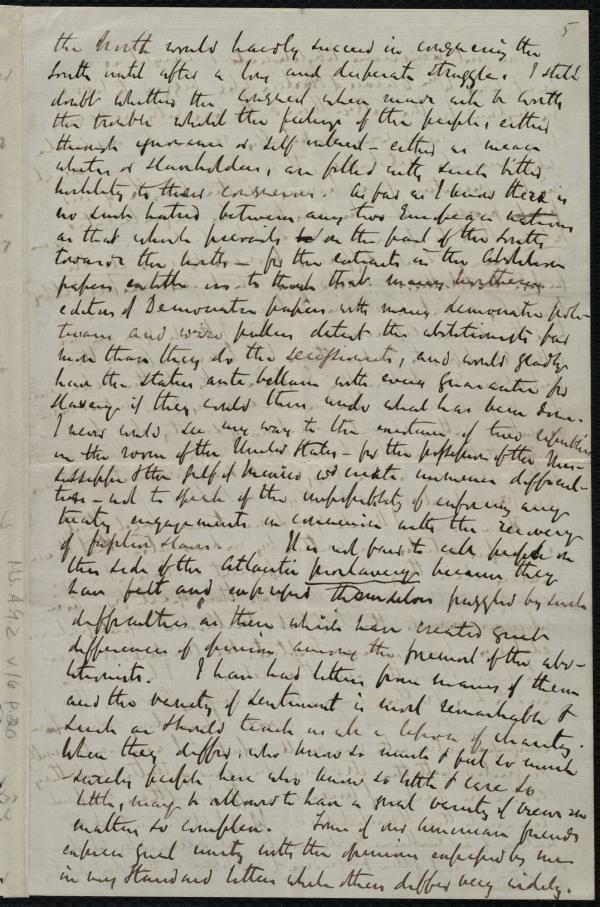 5
the North would hardly succeed in conquering the
South until after a long and desperate struggle. I still
doubt whether the conquest when made will be worth
the trouble whilst the feelings of the people, either
through ignorance or self interest - either as mean
whites or slaveholders, are filled with such bitter
hostility to their conquerors. As far as I know there is
no such hatred between any two European nations
as that which prevails on the part of the South
towards the North - for the extracts in the Abolition
papers entitle us to think that many northern
editors of Democratic papers with many democratic poli-
ticians and pullers detest the abolitionists far
more than they do the secessionists, and would gladly
have the status ante bellum with every guarantee for
slavery if they could thus undo what has been done.
I never could see my way to the existence of two republics
in the room of the United States - for the possession of the Mis-
sissippi & the gulf of Mexico would create immense difficul-
ties - not to speak of the impossibility of enforcing any
treaty engagements in connexion with the recovery
of fugitive slaves. It is not fair to call people on
this side of the Atlantic proslavery because they
have felt and expressed themselves puzzled by such
difficulties as these which have created great
differences of opinion among the foremost of the abo-
litionists. I have had letters from many of them
and the variety of sentiment is most remarkable &
such as should teach us all a lesson of charity.
When they differ, who know so much & feel so much
surely people here who know so little & care so
little, may be allowed to have a great variety of views on
matters so complex. Some of our American friends
express great unity with the opinions expressed by me
in my Standard letters while others differ very widely.
MS. A 9.2 v 16 P 30